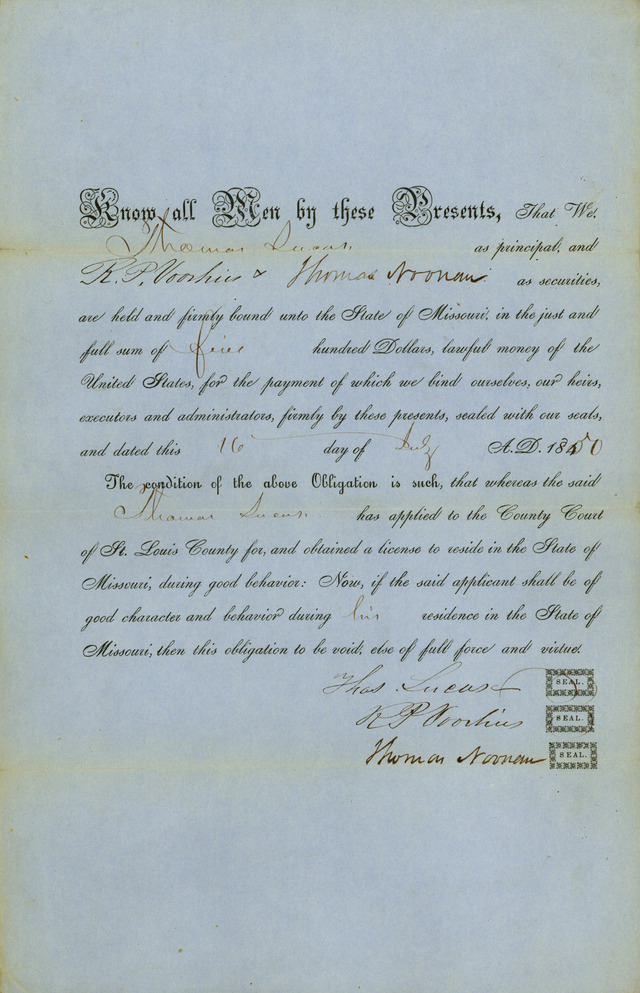 Know all Men by these Presents, That We,
Thomas Lucas as principal, and
R. P. Voorhies & Thomas Noonan as securities,
are held and firmly bound unto the State of Missouri, in the just and
full sum of five hundred Dollars, lawful money of the
United States, for the payment of which we bind ourselves, our heirs,
executors and administrators, firmly by these presents, sealed with our seals,
and dated this 16 day of July A.D. 1850
The condition of the above Obligation is such, that whereas the said
Thomas Lucas has applied to the County Court
of St. Louis County for, and obtained a license to reside in the State of
Missouri, during good behavior: Now, if the said applicant shall be of
good character and behavior during his residence in the State of
Missouri, then this obligation to be void, else of full force and virtue.
Thos Lucas SEAL.
R P Voorhies SEAL.
Thomas Noonan SEAL.